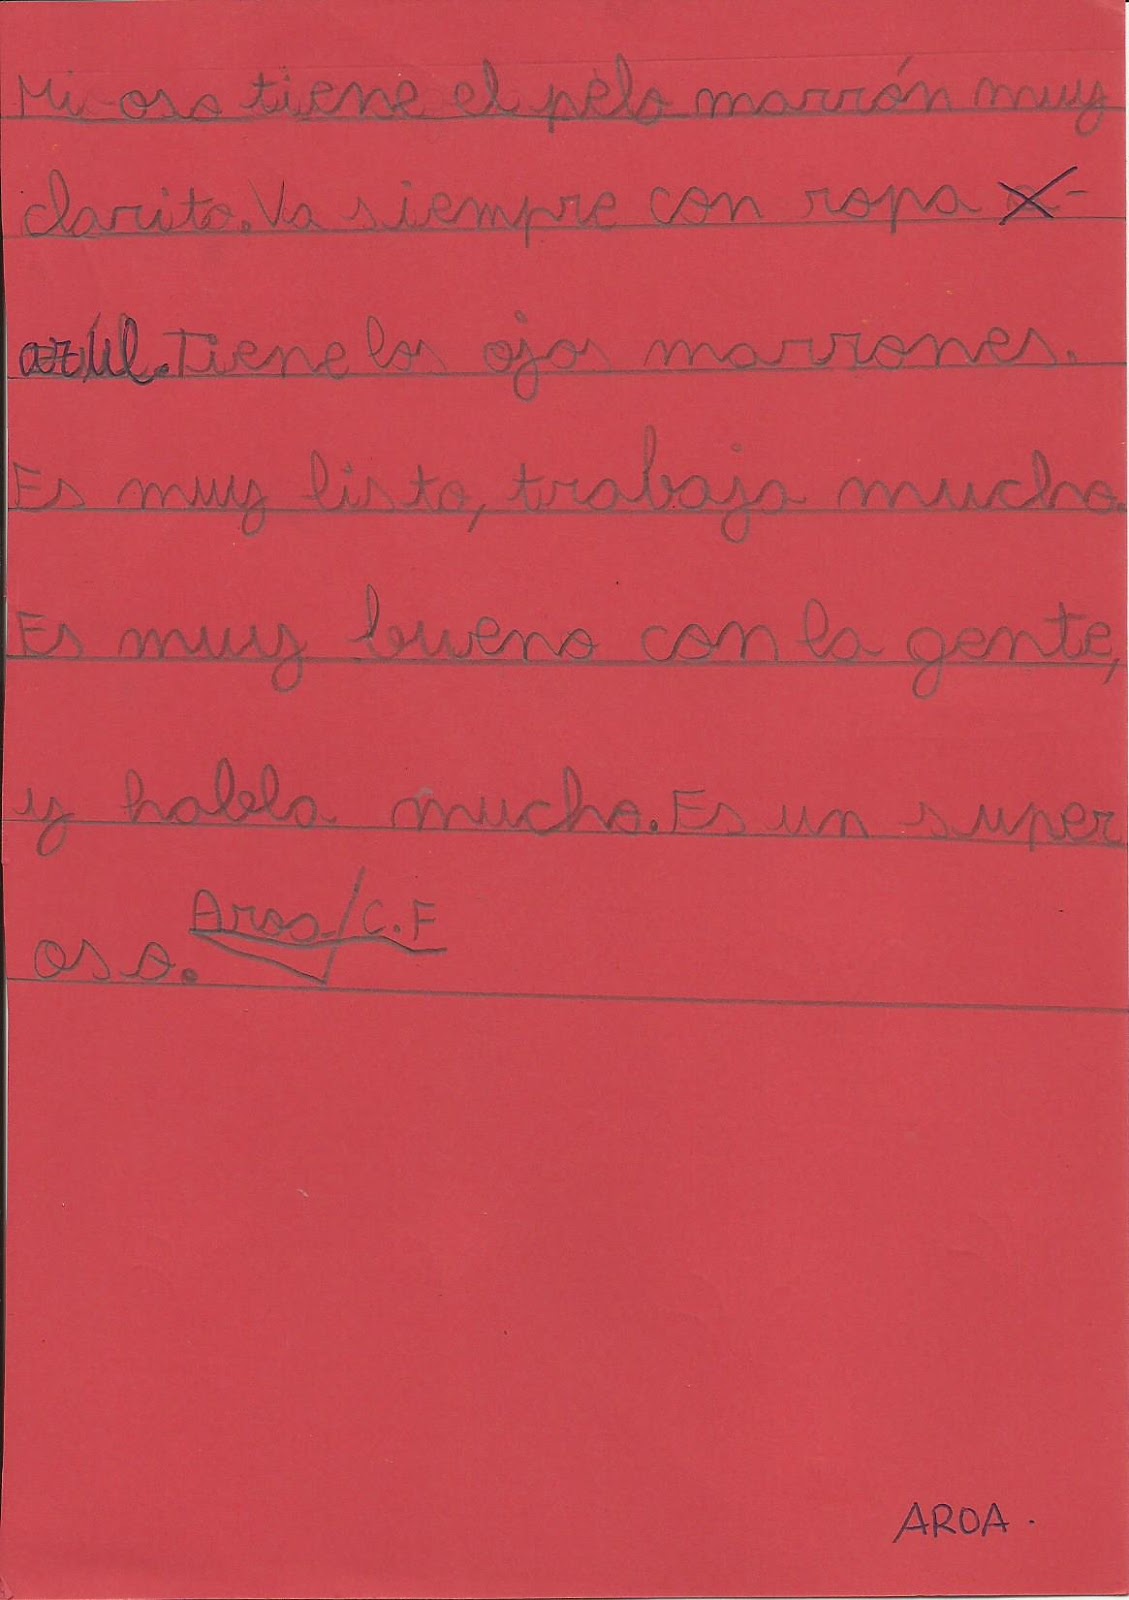 Mi oso tiene el pelo marrón muy
clarito. Va siempre con ropa a-
azul. Tiene los ojos marrones.
Es muy listo, trabaja mucho.
Es muy bueno con la gente,
y habla mucho. Es un super
oso.
Aroa / C.F
AROA.